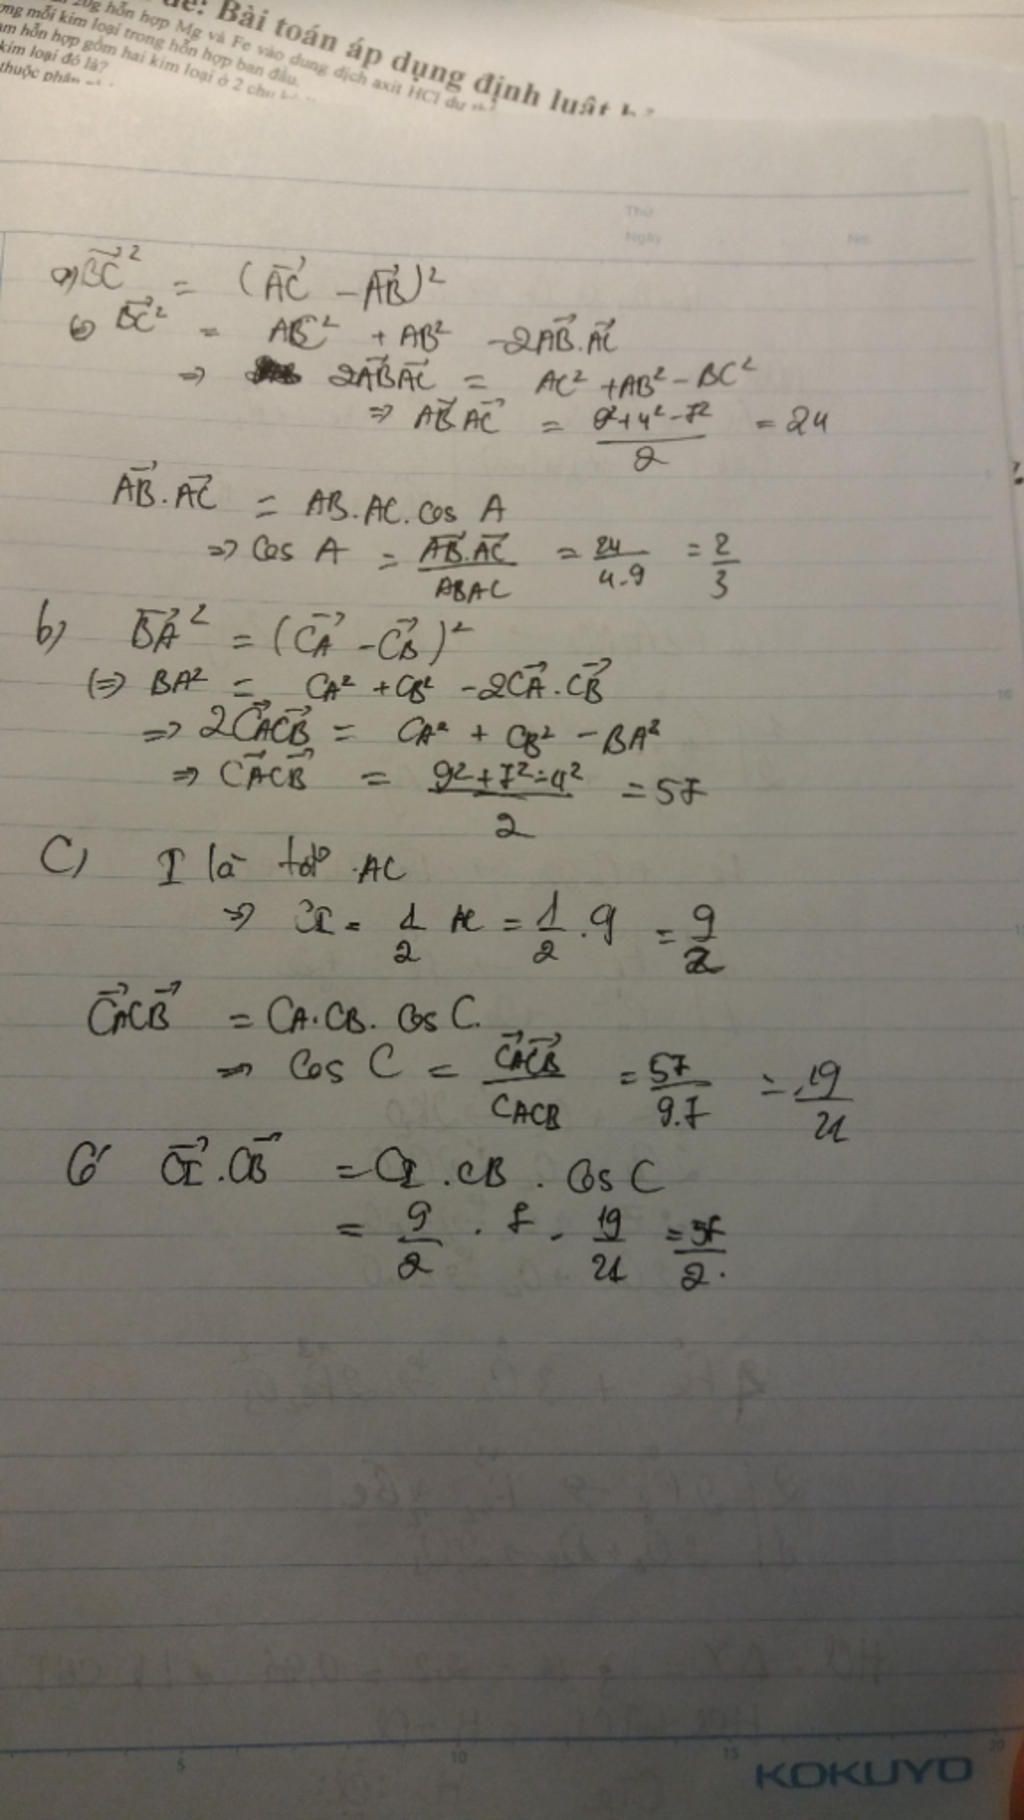 20g hỗn hợp Mg và Fe vào dung dịch axit HCl dư
đề: Bài toán áp dụng định luật
ợng mỗi kim loại trong hỗn hợp ban đầu.
am hỗn hợp gồm hai kim loại ở 2 chu
kim loại đó là?
thuộc phân
Thứ
Ngày
No.
a) BC² = (AC - AB)²
(=) BC² = AC² + AB² - 2AB.AC
=> 2AB AC = AC² + AB² - BC²
=> AB AC = (9² + 4² - 7²)/2 = 24
AB.AC = AB.AC.cos A
=> Cos A = AB.AC/ABAC = 24/4.9 = 2/3
b) BA² = (CA - CB)²
(=> BA² = CA² + CB² - 2CA.CB
=> 2CACB = CA² + CB² - BA²
=> CACB = (9² + 7² - 4²)/2 = 57
C) I là tđ AC
=> CI = 1/2 AC = 1/2 . 9 = 9/2
CACB = CA.CB.cos C.
=> Cos C = CACB/CACB = 57/9.7 = 19/21
Có CI.CB = CI.CB.Cos C
= 9/2 . 7 . 19/21 = 57/2.
5 10 15 20
KOKUYO